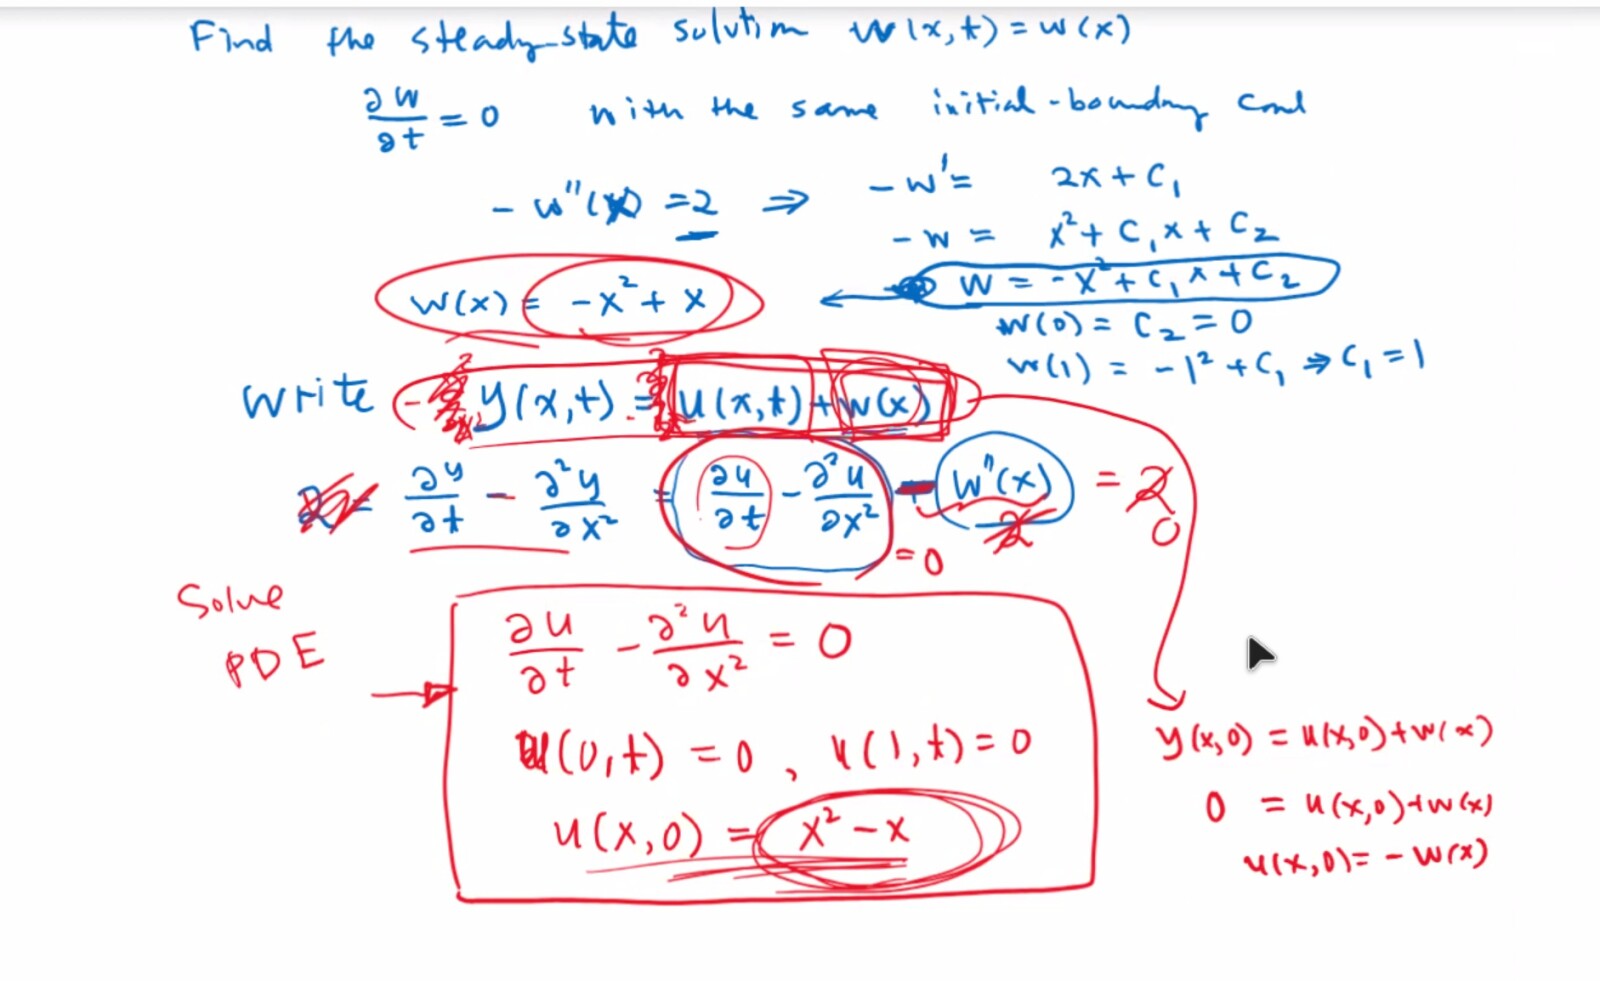 Find the steady-state solution w(x,t) = w(x)
∂w/∂t = 0 with the same initial-boundary cond
- w''(x) = 2 ⇒ - w' = 2x + C₁
- w = x² + C₁x + C₂
w = - x² + C₁x + C₂
w(x) = - x² + x
w(0) = C₂ = 0
w(1) = - 1² + C₁ ⇒ C₁ = 1
Write y(x,t) = u(x,t) + w(x)
∂y/∂t - ∂²y/∂x² = ∂u/∂t - ∂²u/∂x² - w''(x) = 2
= 0
0
Solve
PDE
∂u/∂t - ∂²u/∂x² = 0
u(0,t) = 0 , u(1,t) = 0
u(x,0) = x² - x
y(x,0) = u(x,0) + w(x)
0 = u(x,0) + w(x)
u(x,0) = - w(x)